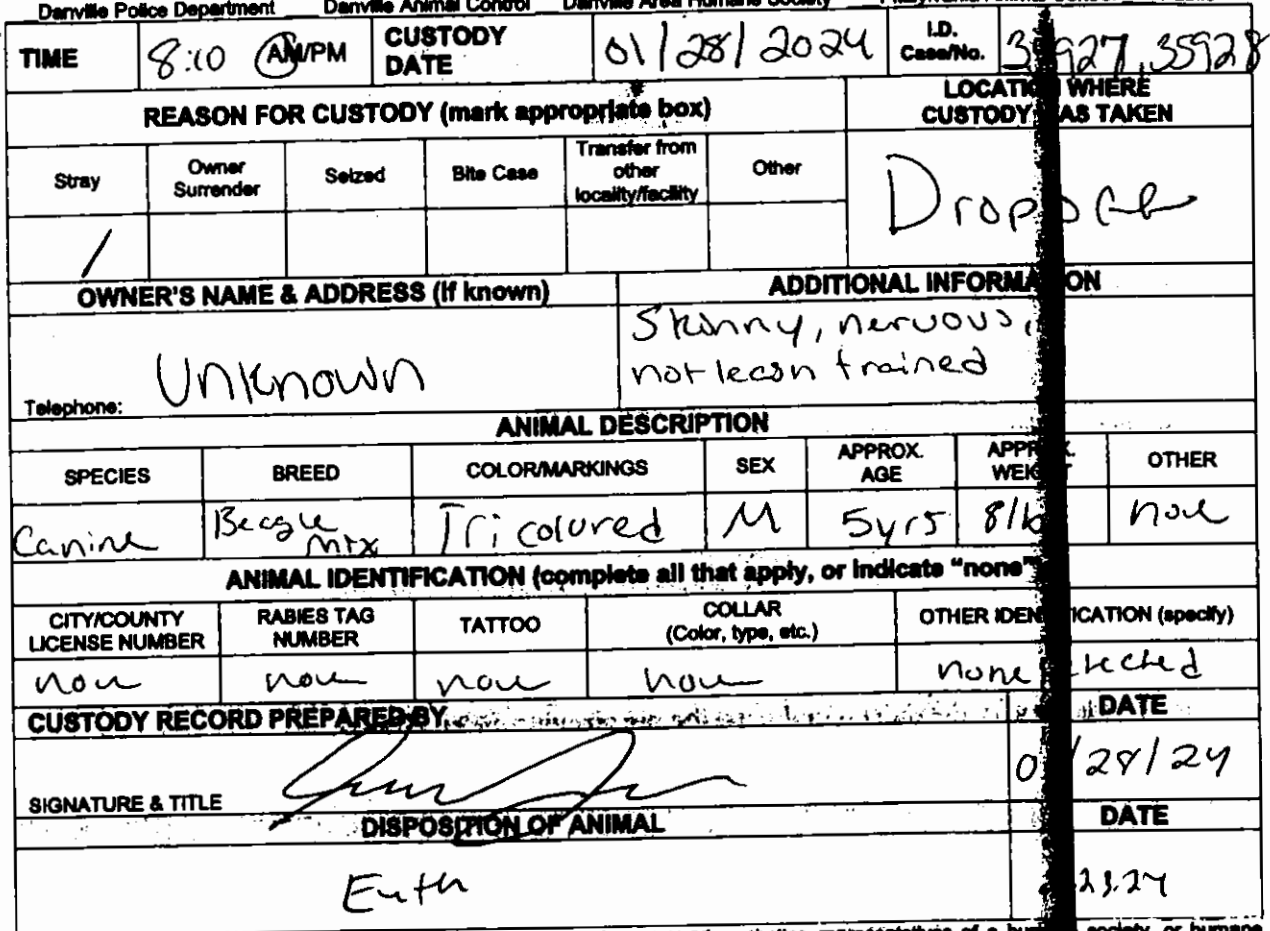 Danville Police Department Danville Animal Control Danville Area Humane Society
TIME 8:10 AM/PM CUSTODY DATE 01/28/2024 I.D. Case/No. 35928
REASON FOR CUSTODY (mark appropriate box)
LOCATION WHERE
CUSTODY WAS TAKEN
Stray
Owner Surrender
Seized
Bite Case
Transfer from other locality/facility
Other
/
OWNER'S NAME & ADDRESS (if known)
Unknown
Telephone:
ADDITIONAL INFORMATION
Skinny, nervous,
not leash trained
ANIMAL DESCRIPTION
SPECIES BREED COLOR/MARKINGS SEX APPROX. AGE APPROX. WEIGHT OTHER
Canine Beagle Mix Tricolored M 5yrs none
ANIMAL IDENTIFICATION (complete all that apply, or indicate "none"
CITY/COUNTY LICENSE NUMBER
RABIES TAG NUMBER
TATTOO
COLLAR (Color, type, etc.)
OTHER IDENTIFICATION (specify)
none none none none none
CUSTODY RECORD PREPARED BY DATE
SIGNATURE & TITLE
/28/24
DISPOSITION OF ANIMAL DATE
Euth 23.24